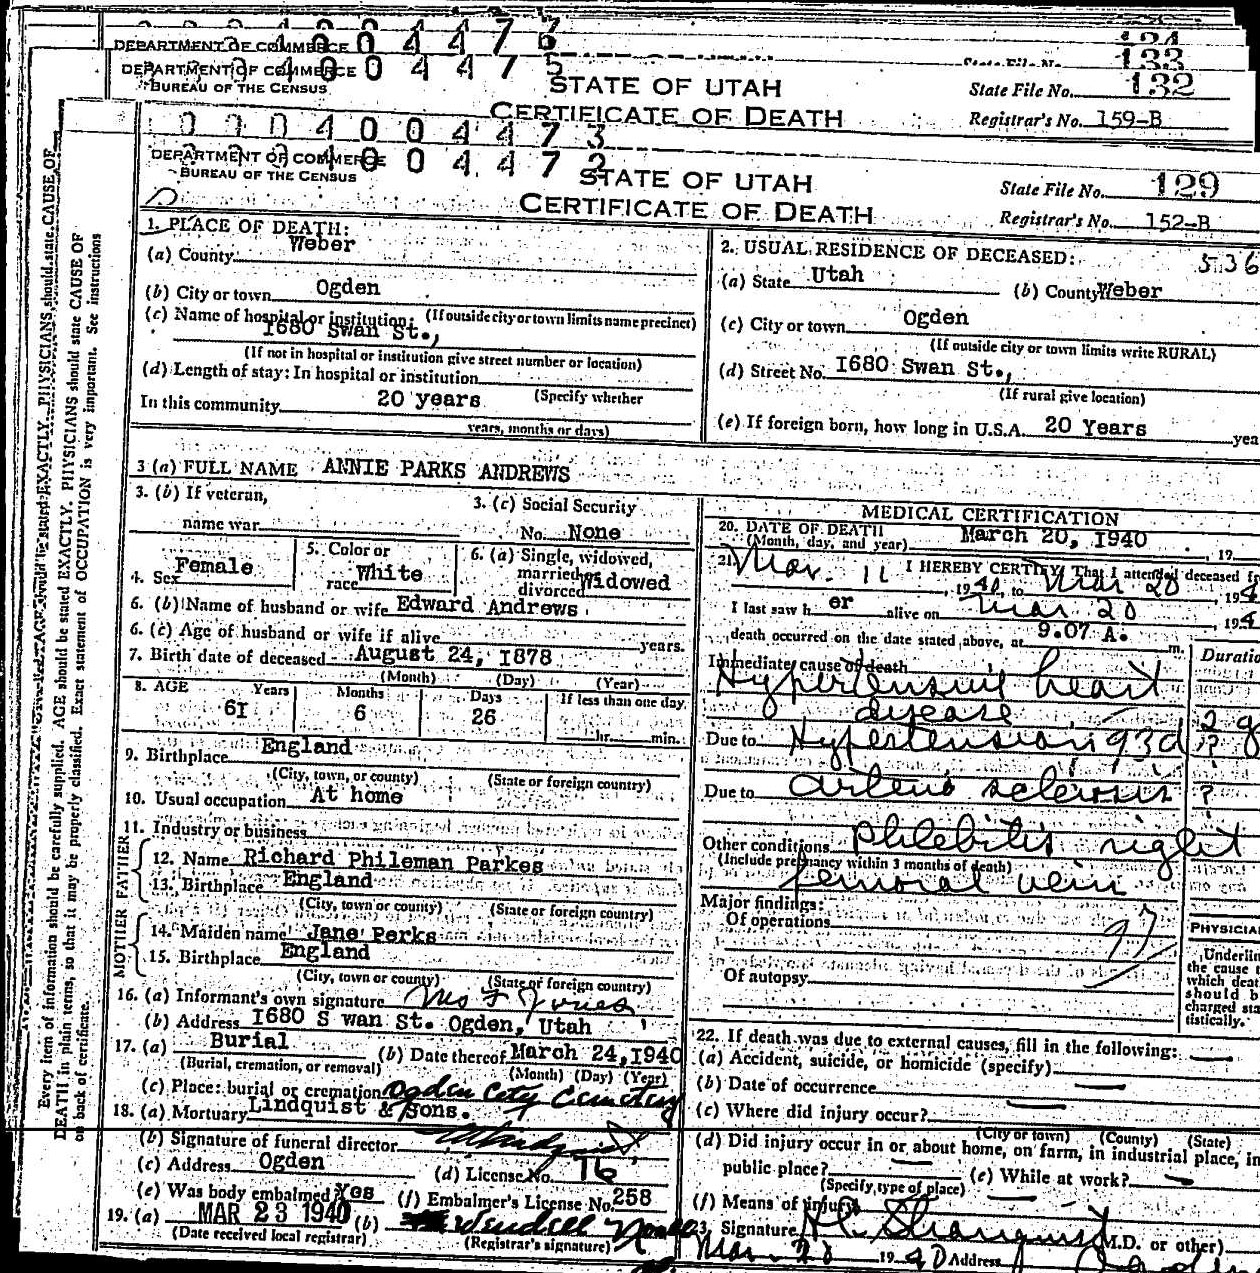 0 0 4 4 7 6
DEPARTMENT OF COMMERCE
134
133
DEPARTMENT OF COMMERCE
4 0 0 4 4 7 5
BUREAU OF THE CENSUS
STATE OF UTAH
CERTIFICATE OF DEATH
State File No. 132
Registrar's No. 159-B
4 0 0 4 4 7 3
DEPARTMENT OF COMMERCE
4 0 0 4 4 7 2
BUREAU OF THE CENSUS
STATE OF UTAH
CERTIFICATE OF DEATH
State File No. 129
Registrar's No. 152-B
Every item of information should be carefully supplied. AGE should be stated EXACTLY. PHYSICIANS should state CAUSE OF
DEATH in plain terms, so that it may be properly classified. Exact statement of OCCUPATION is very important. See instructions
on back of certificate.
1. PLACE OF DEATH:
(a) County Weber
(b) City or town Ogden
(If outside city or town limits name precinct)
(c) Name of hospital or institution:
1680 Swan St.,
(If not in hospital or institution give street number or location)
(d) Length of stay: In hospital or institution
(Specify whether
In this community 20 years
years, months or days)
2. USUAL RESIDENCE OF DECEASED:
536
(a) State Utah (b) County Weber
(c) City or town Ogden
(If outside city or town limits write RURAL)
(d) Street No. 1680 Swan St.,
(If rural give location)
(e) If foreign born, how long in U.S.A. 20 Years yea
3 (a) FULL NAME ANNIE PARKS ANDREWS
3. (b) If veteran,
name war
3. (c) Social Security
No. None
4. Sex Female
5. Color or
race White
6. (a) Single, widowed,
married,
divorced Widowed
6. (b) Name of husband or wife Edward Andrews
6. (c) Age of husband or wife if alive years.
7. Birth date of deceased August 24, 1878
(Month) (Day) (Year)
8. AGE Years Months Days If less than one day
61 6 26 hr. min.
9. Birthplace England
(City, town, or county) (State or foreign country)
10. Usual occupation At home
11. Industry or business
FATHER
12. Name Richard Phileman Parkes
13. Birthplace England
(City, town or county) (State or foreign country)
MOTHER
14. Maiden name Jane Perks
15. Birthplace England
(City, town or county) (State or foreign country)
16. (a) Informant's own signature Mrs F Jones
(b) Address 1680 S wan St. Ogden, Utah
17. (a) Burial (b) Date thereof March 24, 1940
(Burial, cremation, or removal) (Month) (Day) (Year)
(c) Place: burial or cremation Ogden City Cemetery
18. (a) Mortuary Lindquist & Sons.
(b) Signature of funeral director
(c) Address Ogden (d) License No. 76
(e) Was body embalmed? Yes (f) Embalmer's License No. 258
19. (a) MAR 23 1940 (b) Wendell
(Date received local registrar) (Registrar's signature)
MEDICAL CERTIFICATION
20. DATE OF DEATH
(Month, day, and year) March 20, 1940 , 19
21. I HEREBY CERTIFY, That I attended deceased fr
Mar. 11 , 1940, to Mar 20 , 194
I last saw h er alive on Mar 20 , 194
death occurred on the date stated above, at 9.07 A. m.
Immediate cause of death
Duratio
Hypertensive heart
disease
2 y
Due to Hypertension 93d ?
Due to Arterio sclerosis ?
Other conditions Phlebitis right
(Include pregnancy within 3 months of death)
femoral vein
Major findings:
Of operations
97
Of autopsy
PHYSICIA
Underlin
the cause
which deat
should b
charged sta
tistically.
22. If death was due to external causes, fill in the following:
(a) Accident, suicide, or homicide (specify)
(b) Date of occurrence
(c) Where did injury occur?
(City or town) (County) (State)
(d) Did injury occur in or about home, on farm, in industrial place, in
public place? (e) While at work?
(Specify type of place)
(f) Means of injury
23. Signature (M.D. or other)
Mar. 20 1940 Address